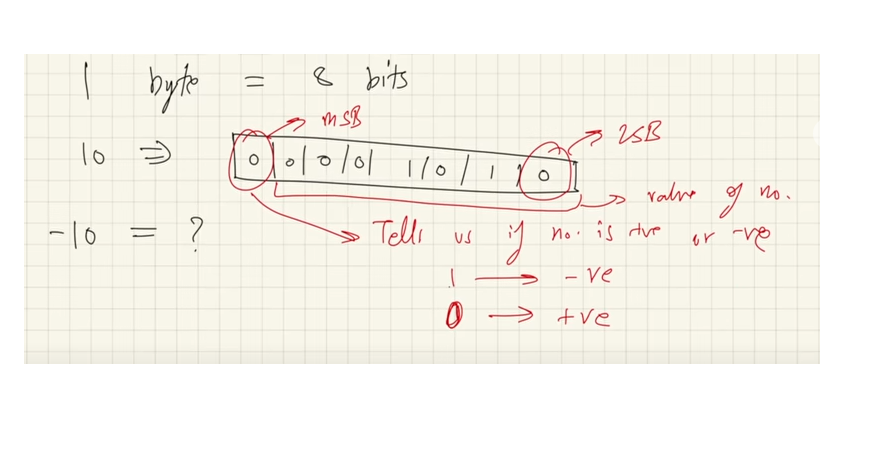 1 byte = 8 bits
MSB
LSB
10 ⇒ 0 | 0 | 0 | 0 | 1 | 0 | 1 | 0
value of no.
-10 = ?
Tells us if no. is +ve or -ve
1 → -ve
0 → +ve